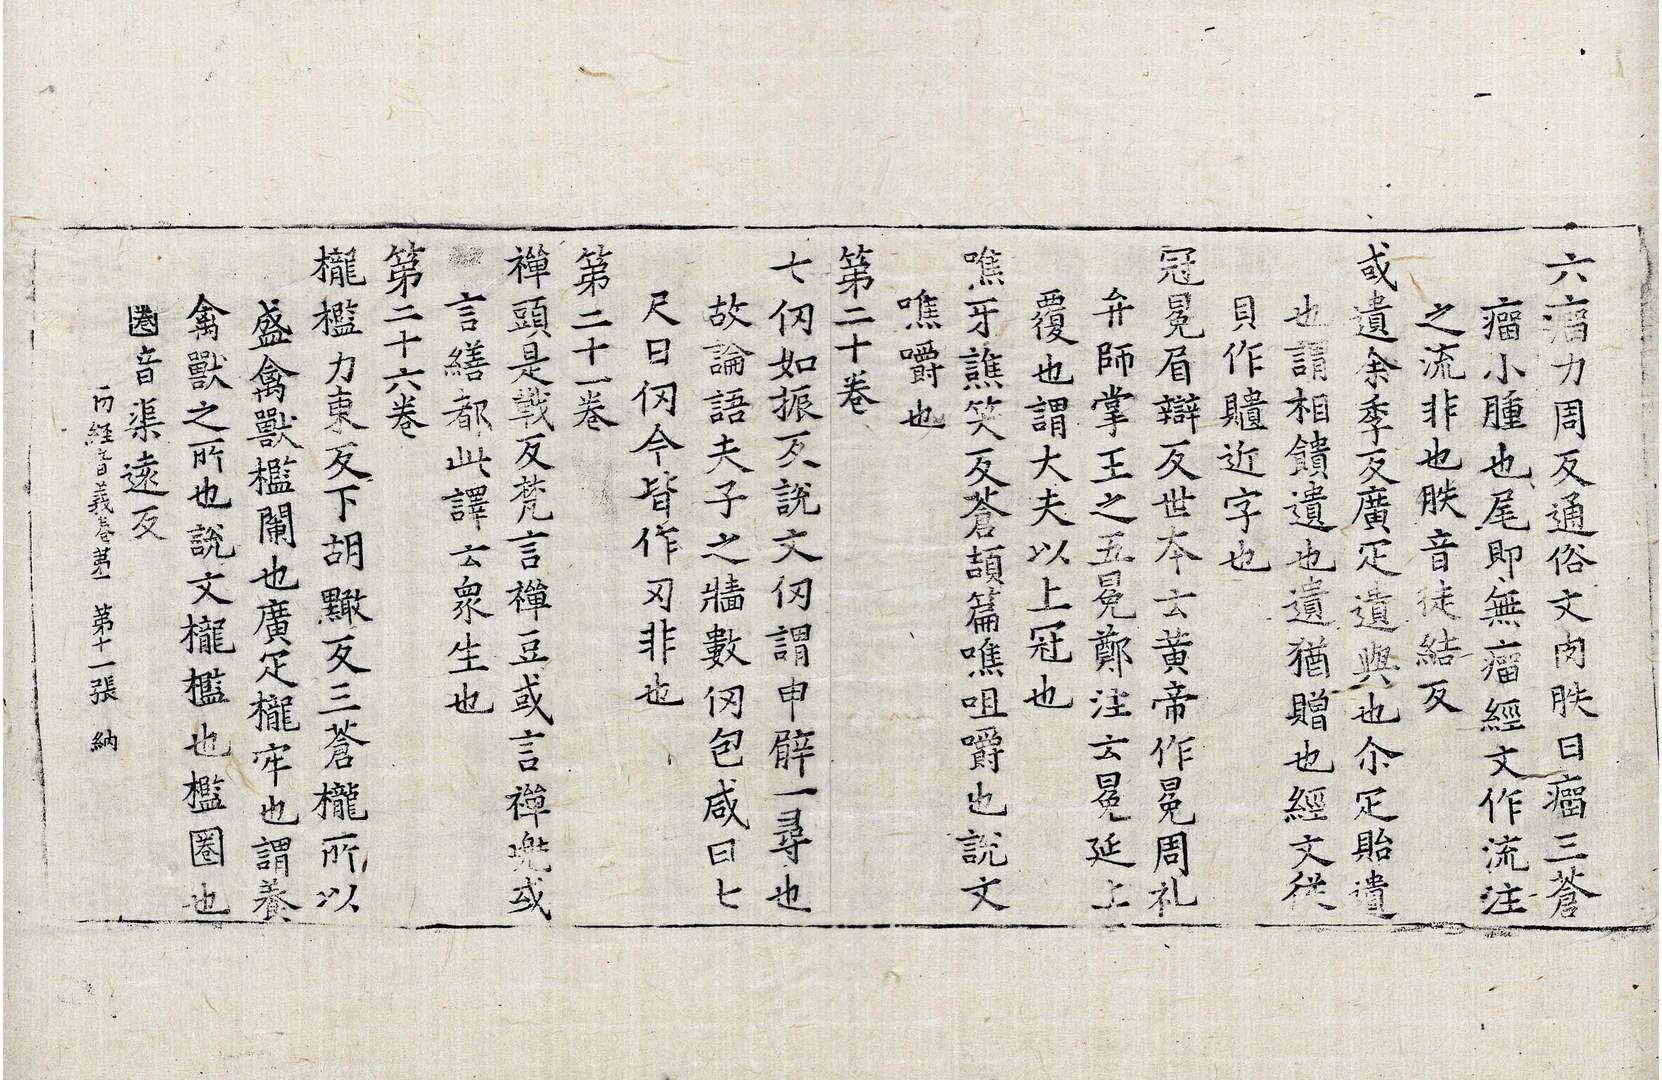 六瘤力周反通俗文肉胅曰瘤三蒼
瘤小腫也尾即無瘤經文作流注
之流非也胅音徒結反
或遺余季反廣疋遺與也尒疋貽遺
也謂相饋遺也遺猶贈也經文從
貝作䞇近字也
冠冕眉辯反世夲云黃帝作冕周礼
弁師掌王之五冕鄭注云冕延上
覆也謂大夫以上冠也
噍牙譙笑反蒼頡篇噍咀嚼也說文
噍嚼也
第二十卷
七仞如振反說文仞謂申臂一尋也
故論語夫子之牆數仞包咸曰七
尺曰仞今皆作刃非也
第二十一卷
襌頭是戰反梵言襌豆或言襌兠或
言繕都此譯云衆生也
第二十六卷
櫳檻力東反下胡黤反三蒼櫳所以
盛禽獸檻闌也廣疋櫳牢也謂養
禽獸之所也說文櫳檻也檻圈也
圈音渠遠反
內經音義卷第一 第十一張 納